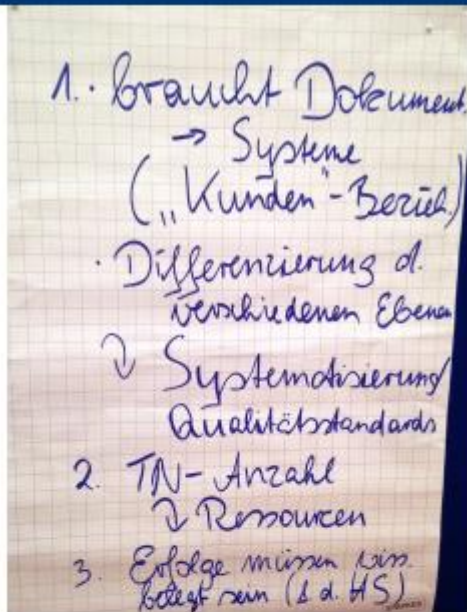 1. · braucht Dokument.
→ Systeme
("Kunden"-Bezieh.)
· Differenzierung d.
verschiedenen Ebenen
↷ Systematisierung/
Qualitätsstandards
2. TN-Anzahl
↷ Ressourcen
3. Erfolge müssen wiss.
belegt sein (& d. HS)